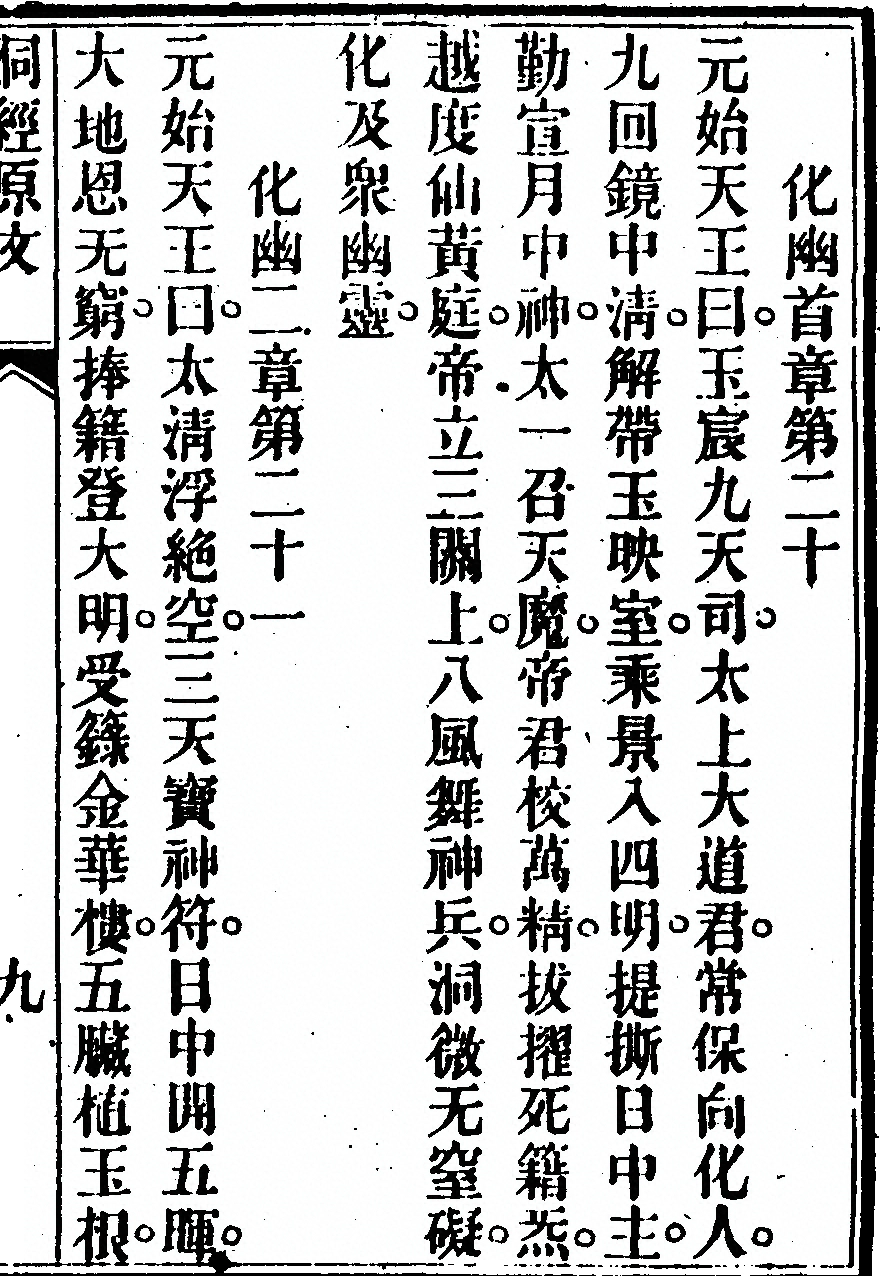 化幽首章第二十
元始天王曰。玉宸九天司。太上大道君。常保向化人。
九回鏡中淸。解帶玉映室。乘景入四明。提撕日中主。
勤宣月中神。太一召天魔。帝君校萬精。拔擢死籍炁。
越度仙黃庭。帝立三關上。八風舞神兵。洞微无窒礙。
化及衆幽靈。
化幽二章第二十一
元始天王曰。太淸浮絕空。三天寶神符。日中開五暉。
大地恩无窮。捧籍登大明。受籙金華樓。五臟植玉根。
洞經原文
九